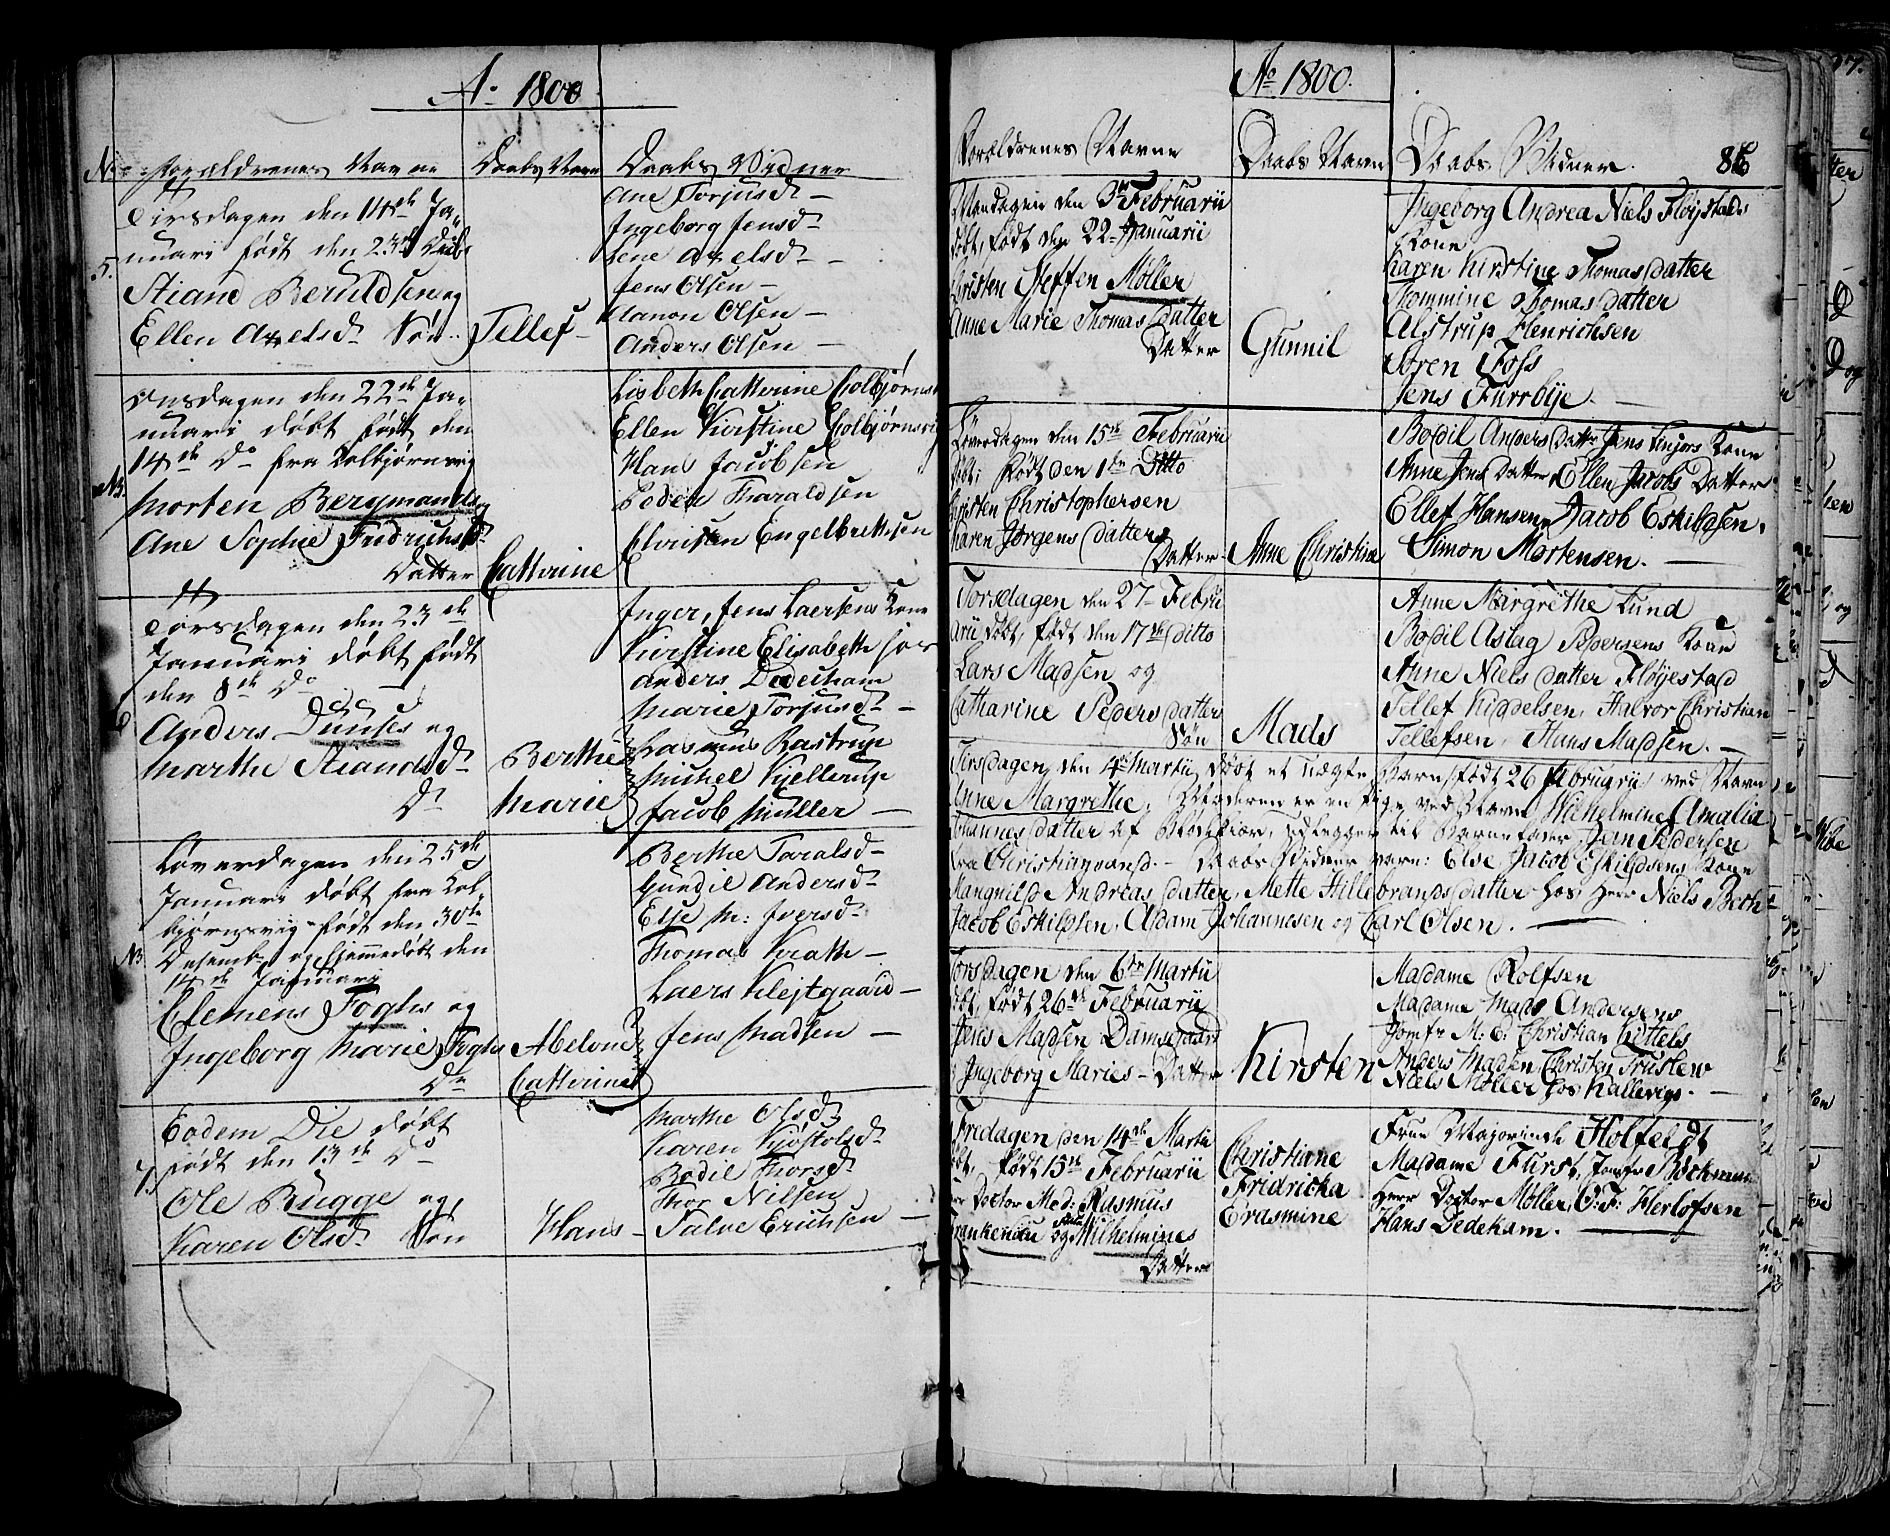 Ao 1800
No Forældrenes Navne Daabs Navn Daabs Vidner
Tirsdagen den 14de Ja-
nuari født den 23de Decbr
5. Stiand Beruldsen og
Ellen Axelsd. Søn
Tellef
Ane Torjusd.
Ingeborg Jensd.
Lene Axelsd.
Jens Olsen
Olsen
Anders Olsen
Onsdagen den 22de Ja-
nuari døbt født den
14de Do fra Colbjørnsvig
Morten Bergmands og
Ane Sophie Fridrichsd.
Datter
Catterine
Lisbeth Catterine Colbjørns
Ellen Kirstine Colbjørnsvig
Hans Jacobsen
Peder Tharaldsen
Christen Engelbrethsen
Torsdagen den 23de
Januari døbt født
den 8de Do
6 Anders Duuses og
Marthe Stiandsd.
Dr
Berthe
Marie
Inger, Jens Laersens Kone
Kirstine Elisabeth
Anders Dedeham
Marie Torjusd.
Rasmus Rastrup
Michel Kjellerup
Jacob Müller
Løverdagen den 25de
Januari døbt fra Col-
bjørnsvig født den 30te
Desembr og hjemmedøbt den
14de Januari
Clemens Foghs og
Ingeborg Marie Foghs
Dr
Abelone
Catterine
Berthe Taralsd.
Gundil Andersd.
Else M: Iversd.
Thomas Krath
Laers Klejtgaard
Jens Madsen
Eodem Die døbt
født den 13de Do
7. Ole Bugge og
Karen Olsd. Søn
Hans
Marthe Olsd.
Karen Kjøstolsd.
Bodil Thorsd.
Thor Nilsen
Salve Erichsen
Ao 1800.
Forældrenes Navne Daabs Navn Daabs Vidner. 86
Mandagen den 3de Februarii
døbt, født den 22 Januarii
Christen Steffen Möller
Anne Marie Thomas datter
Datter
Gunnil
Ingeborg Andrea Niels Fløystads
Kone
Karen Kirstine Thomas datter
Rommine Thomas datter
Alstrup Henrichsen
Søren Foss
Jens Furrbye.
Løverdagen den 15de Februarii
døbt, født den 1ste Ditto
Christen Christophersen
Karen Jørgens datters
Datter
Anne Christine
Bodil Anders datter Jens Kone
Anne Jens datter, Ellen Jacobs Datter
Ellef Hansen, Jacob Eskildsen,
Simon Mortensen.
Torsdagen den 27 Febru
arii døbt, født den 17de ditto
Lars Madsen og
Catharine Peders datters
Søn
Mads
Anne Margrethe Lund
Bodil Aslag Pedersens Kone
Anne Niels datter Fløyestad
Tellef Kiddelsen, Halvor Christian
Tellefsen, Hans Madsen.
Tirsdagen den 4de Martii døbt et uægte Barn født 26 Februarii ved Navn
Anne Margrethe. Moderen er en Pige ved Navn Wilhelmine Amalia
Johannes datter af udlegger til Barnefader Jens Pedersen
fra Christiansand. Daabs Vidner vare: Else Jacob Eskildsens Kone
Rangnild Andreas datter, Mette Hillebrands datter hos Herr Niels Beth
Jacob Eskildsen, Adam Johannesen og Carl Olsen.
Torsdagen den 6te Martii
døbt, født 26de Februarii
Jens Madsen Damsgaard
Ingeborg Maries Datter
Kirsten
Madame Rolfsen
Madame Mads Andersens
Jomfr M: C: Christian Kettels
Anders Madsen, Christen Trustew
Niels Möller hos Kallevigs.
Fredagen den 14de Martii
døbt, født 15de Februarii
Herr Doctor Med: Rasmus
Frankenau og Frue Wilhelmines
Datter
Christiane
Fridricka
Erasmine
Frue Majorinde Holfeldt
Madame Furst, Jomfr Böckmann
Herr Doctor Møller, O: F: Herlofsen
Hans Dedeham.